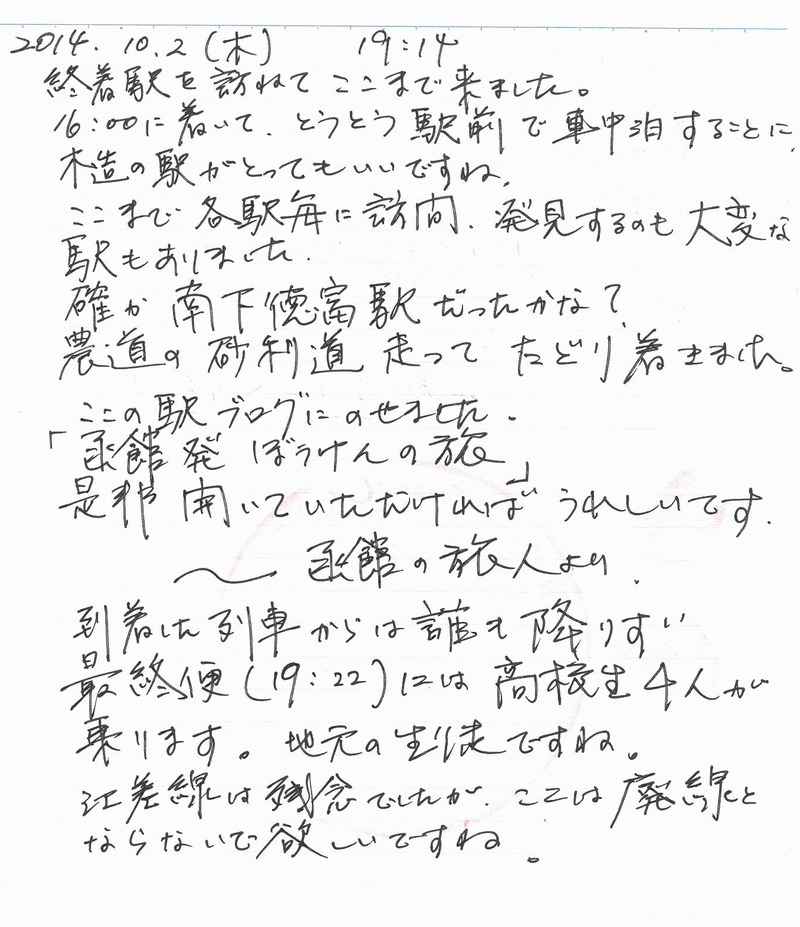 2014.10.2(木) 19:14
終着駅を訪ねてここまで来ました。
16:00に着いて、とうとう駅前で車中泊することに、
木造の駅がとってもいいですね、
ここまで各駅毎に訪問、発見するのも大変な
駅もありました.
確か南下徳富駅だったかな?
農道の砂利道走ってたどり着きました。
ここの駅ブログにのせました.
「函館発ぼうけんの旅」
是非開いていただければうれしいです.
〜函館の旅人より.
到着した列車からは誰も降りずい
最終便(19:22)には高校生4人が
乗ります。地元の生徒ですね。
江差線は残念でしたが、ここは廃線と
ならないで欲しいですね。